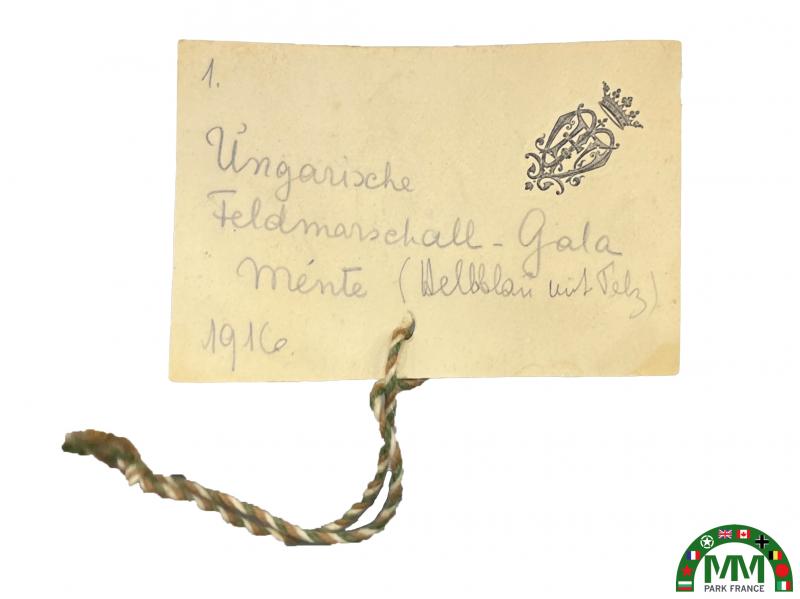 1.
Ungarische
Feldmarschall - Gala
Ménte (Hellblau mit Pelz)
1916.
MM
PARK FRANCE